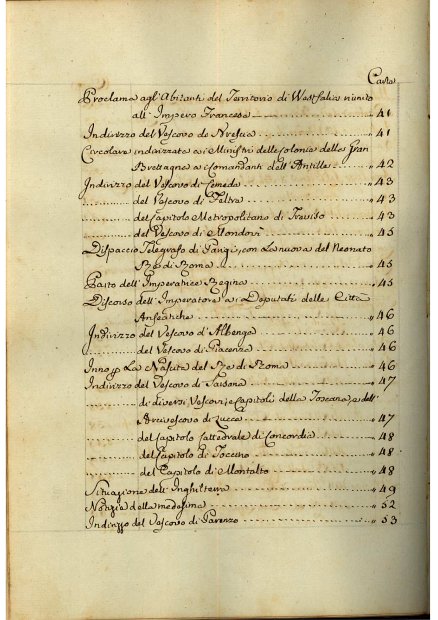 Carta
Proclama agl' Abitanti del Territorio di Westfalia riunito
all' Impero Francese „ 41
Indirizzo del Vescovo di Brescia „ 41
Circolare indirizzata ai Ministri delle Colonie della Gran
Brettagna e Comandanti dell' Antille „ 42
Indirizzo del Vescovo di Ceneda „ 43
del Vescovo di Feltre „ 43
del Capitolo Metropolitano di Treviso „ 43
del Vescovo di Mondovì „ 45
Dispaccio Telegrafo di Parigi, con la nuova del Neonato
Re di Roma „ 45
Parto dell' Imperatrice Regina „ 45
Discorso dell' Imperatore ai Deputati delle Città
Anseatiche „ 46
Indirizzo del Vescovo d' Albenga „ 46
del Vescovo di Piacenza „ 46
Inno p La Nascita del Re di Roma „ 46
Indirizzo del Vescovo di Savona „ 47
di diversi Vescovi, e Capitoli della Toscana, e dell'
Arcivescovo di Lucca „ 47
del Capitolo Cattedrale di Concordia „ 48
del Capitolo di „ 48
del Capitolo di Montalto „ 48
Situazione dell' Inghilterra „ 49
Notizia della medesima „ 52
Indirizzo del Vescovo di Parenzo „ 53